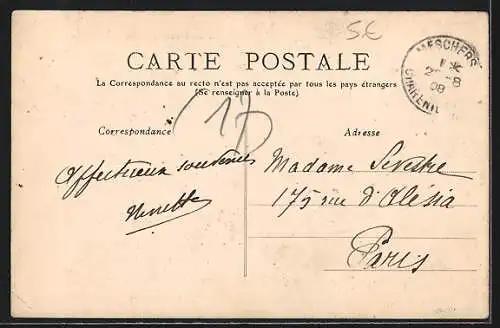 5 €
CARTE POSTALE
La Correspondance au recto n'est pas acceptée par tous les pays étrangers
(Se renseigner à la Poste)
MESCHERS
08
17
Correspondance
Adresse
Affectueux souvenirs
Madame Sevestre
175 rue d'Alésia
Paris